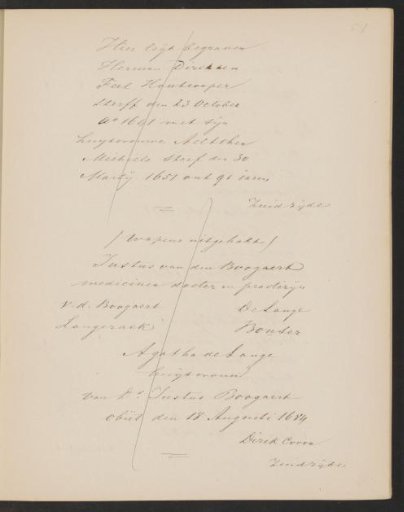 Hier leijt begraven
Herman Dircksen
Houtcooper
sterft den 23 October
Ao 1661 met sijn
huysvrouwe Aeltchen
Michiels sterf den 30
Martij 1651 out 91 iaren
Zuidzijde
(Wapens uitgehakt)
Justus van den Boogaert
medicinen doctor en practizijn
V. d. Boogaert De Lange
Langerack Bouter
Agatha de Lange
huysvrouw
van Dr Justus Boogaert
obiit den 18 Augusti 1684
Dirck
Zuidzijde